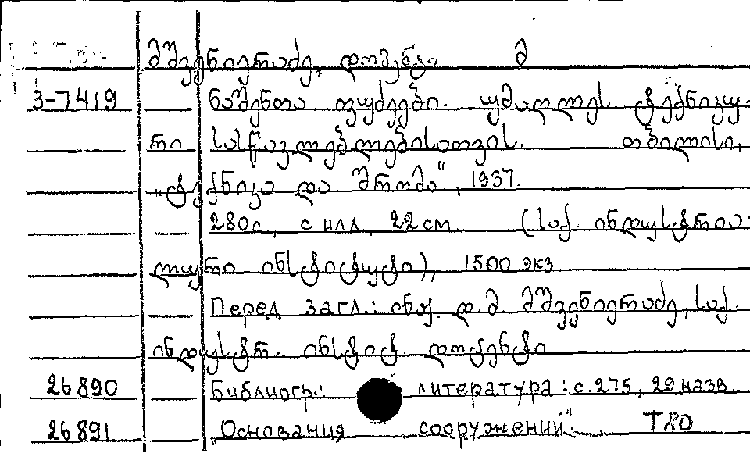 მშვენიერაძე, დომენტი მ
3-7419 ნაშენთა ფუძეები. უმაღლეს. ტექნიკუ-
რი სასწავლებლებისათვის. თბილისი,
„ტექნიკა და შრომა“, 1937.
280с., с илл., 22 см (საქ. ინდუსტრია-
ლური ინსტიტუტი), 1500 экз
Перед загл.: ინჟ. დ. მ მშვენიერაძე, საქ.
ინდუსტრ. ინსტიტ დოცენტი
26890 Библиогр.: литература: с.275, 29 назв
26891 „Основания сооружений“ Т80